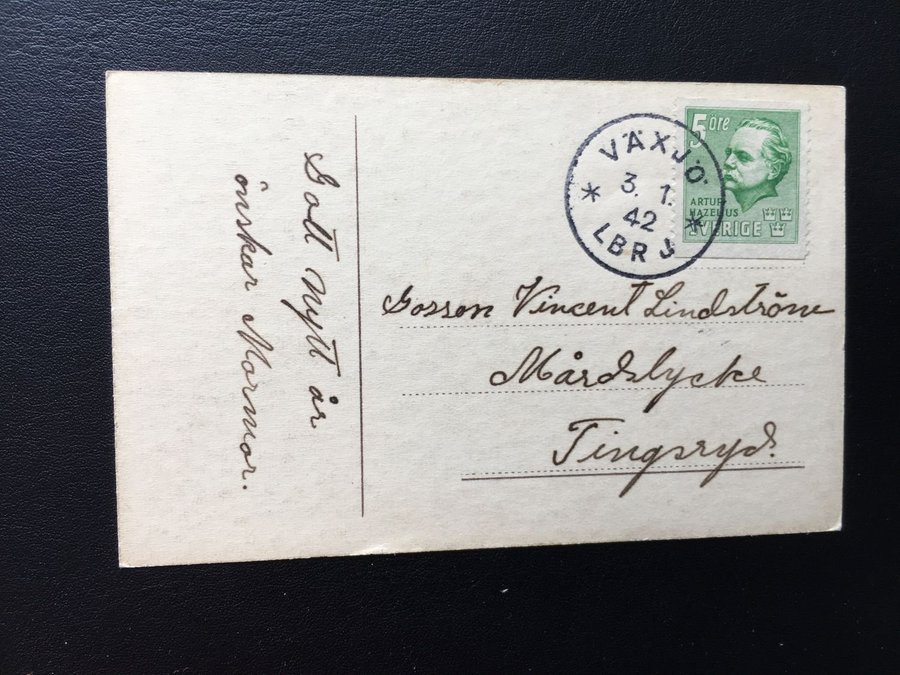 Gott Nytt år
önskar Mormor.
VÄXJÖ
3. 1.
42
LBRJ
5 öre
ARTUR
HAZELIUS
SVERIGE
Gossen Vincent Lindström
Mårdslycke
Tingsryd.